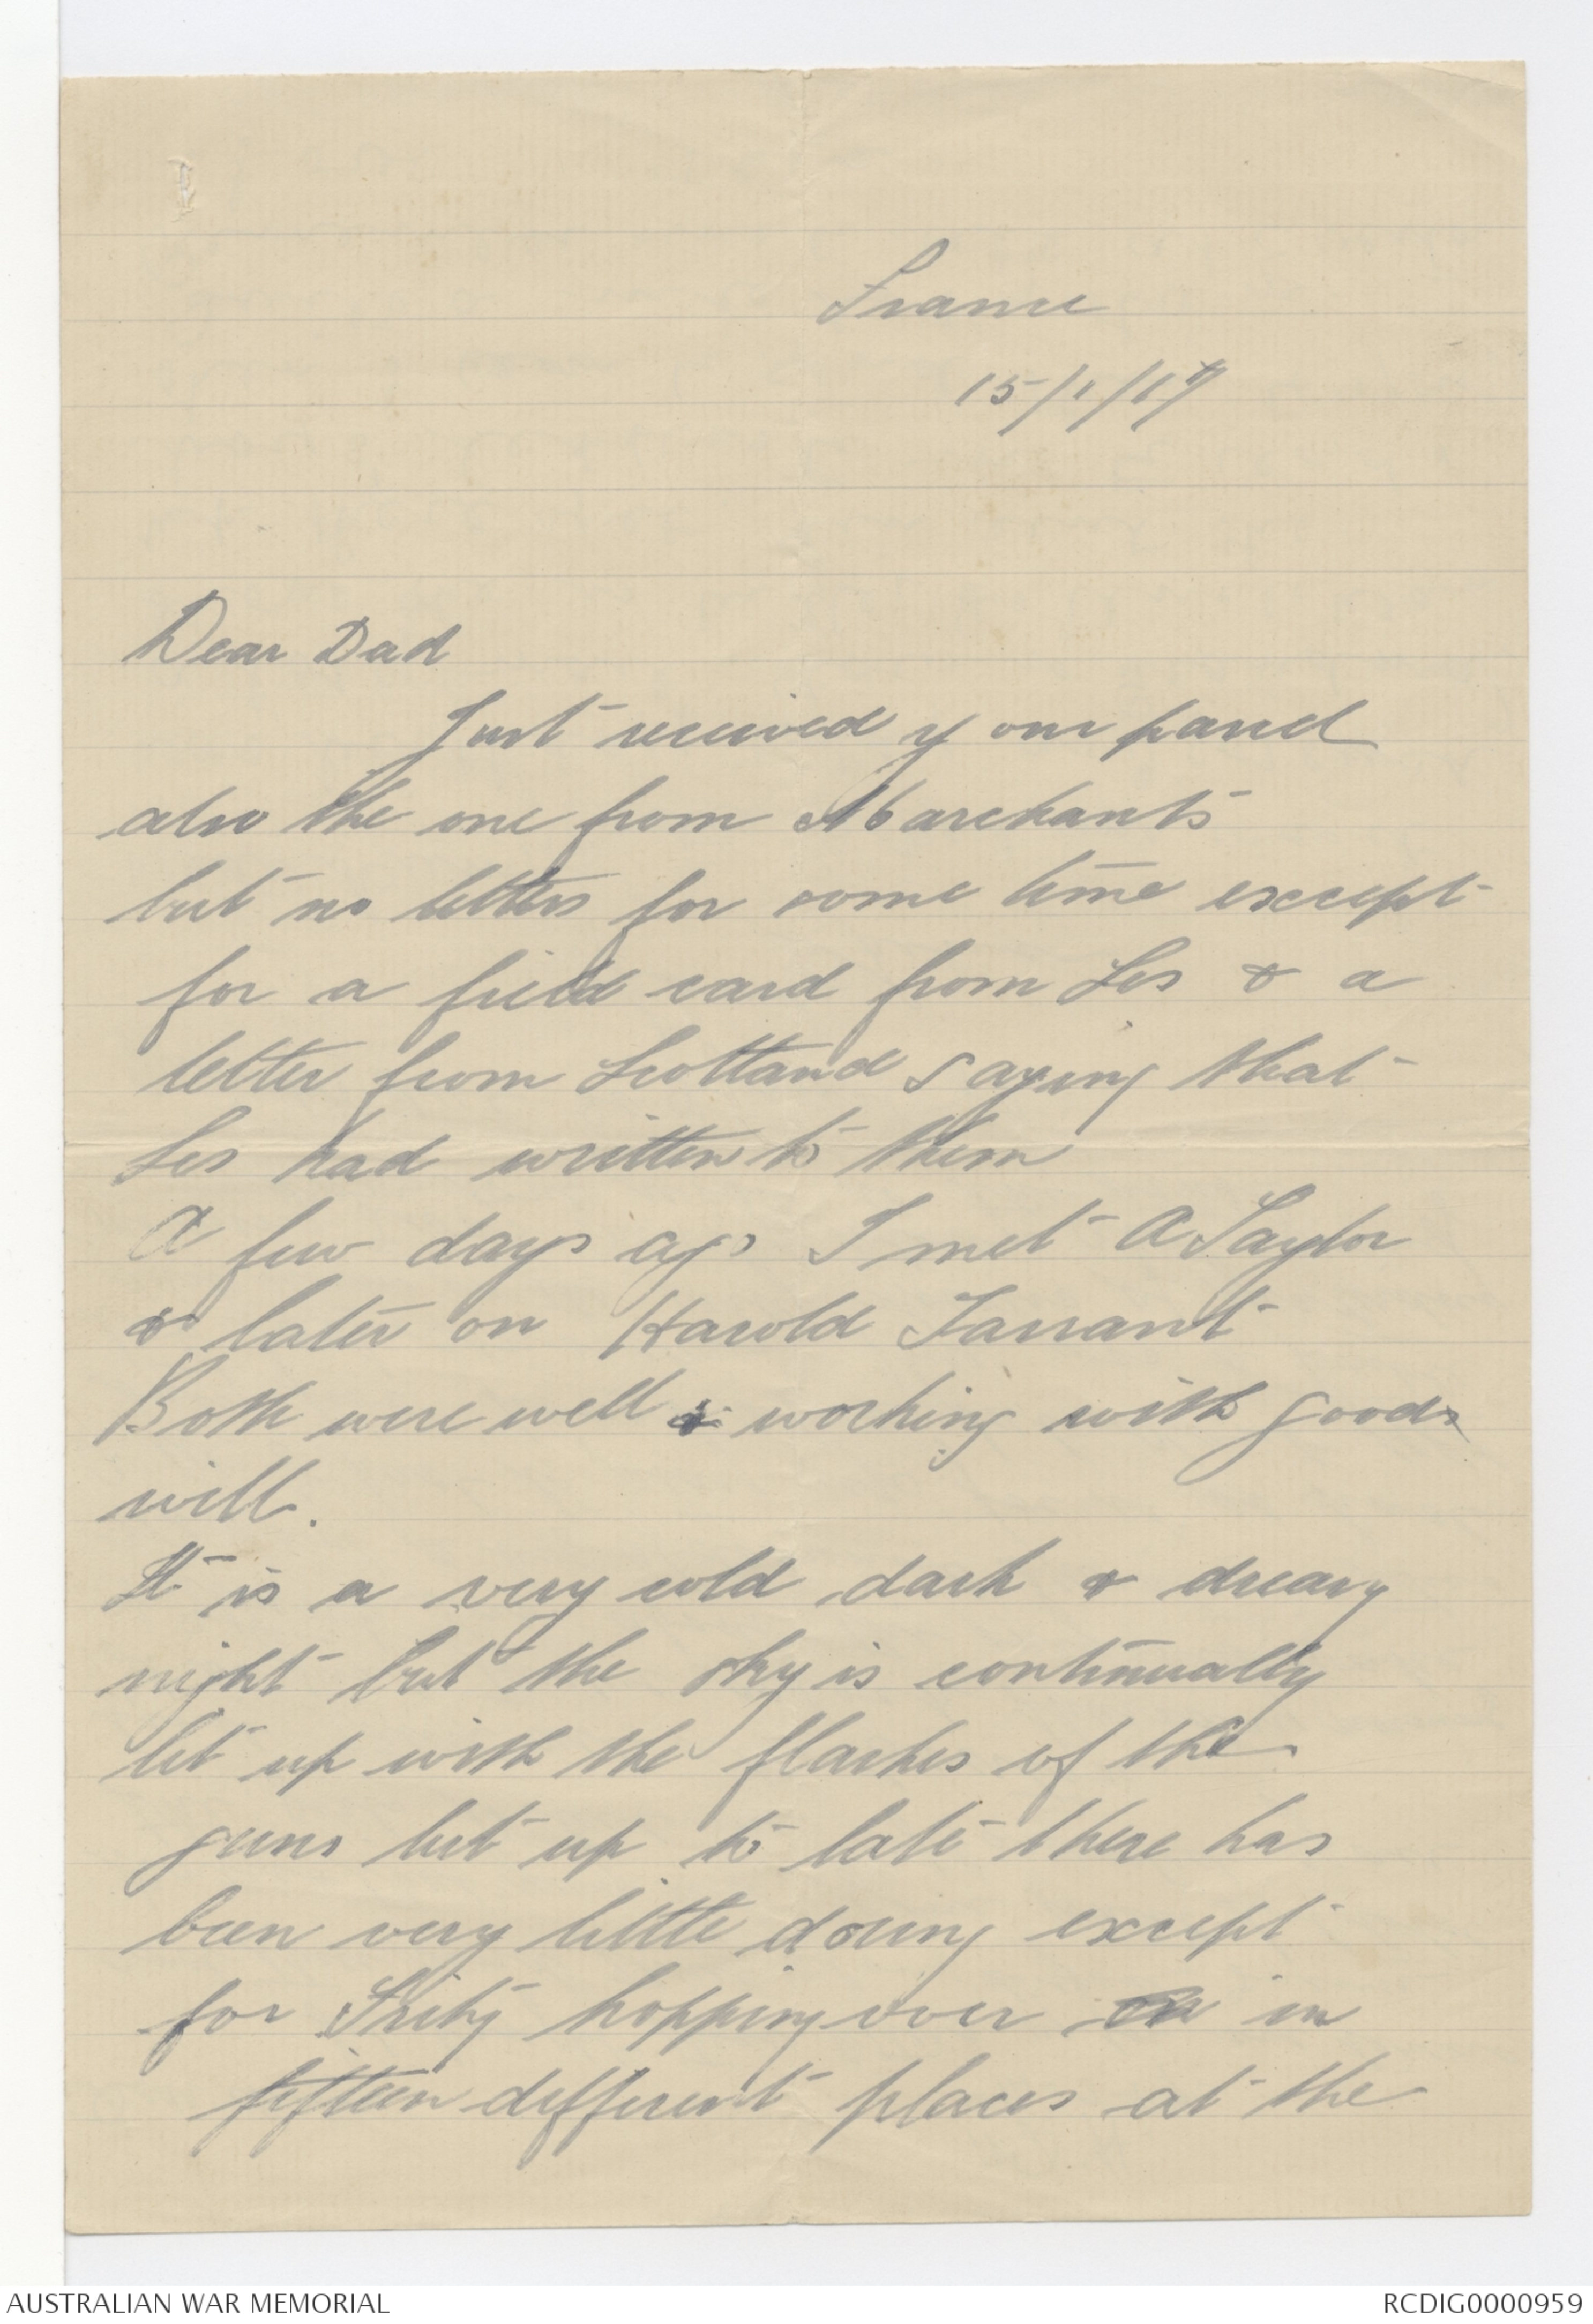 France
15/1/17
Dear Dad
Just received your parcel
also the one from Marchants
but no letters for some time except
for a field card from Les & a
letter from Scotland saying that
Les had written to them
A few days ago I met A Taylor
& later on Harold Tarrant
Both were well & working with good
will.
It is a very cold dark & dreary
night but the sky is continually
lit up with the flashes of the
guns but up to late there has
been very little doing except
for Fritz hopping over in
fifteen different places at the
AUSTRALIAN WAR MEMORIAL
RCDIG0000959